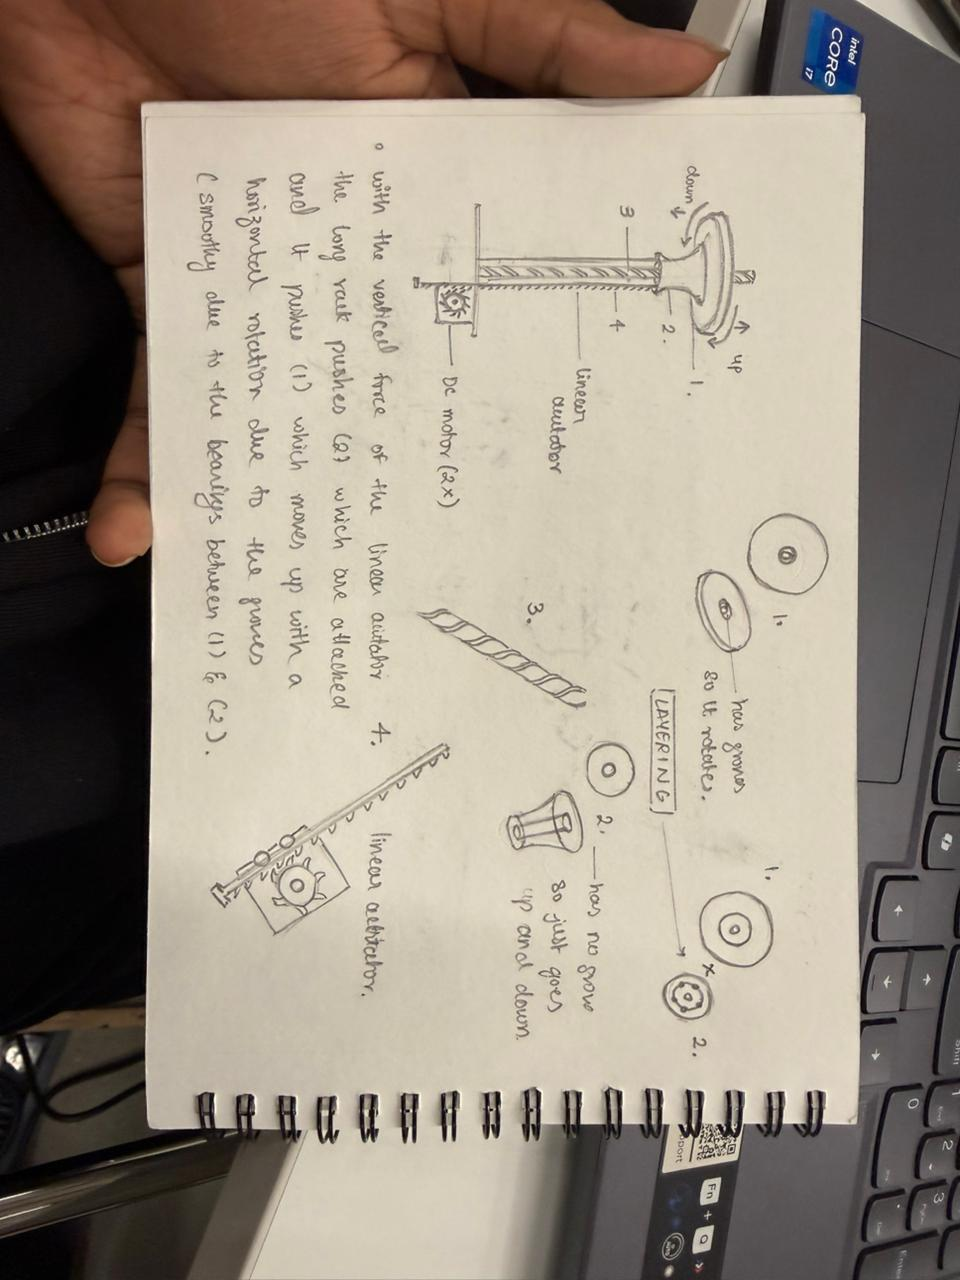 down
up
1.
2.
3
4
linear
acutator
DC motor (2x)
1.
has groves
so it rotates.
LAYERING
1.
x
2.
3.
2.
has no grove
so just goes
up and down
4.
linear actutator.
° with the vertical force of the linear acutator
the long rack pushes (2) which are attached
and it pushes (1) which moves up with a
horizontal rotation due to the groves
(smoothy due to the bearings between (1) & (2).
intel
CORE
i7
Fn + Q
Shift
0
1
2
3
Enter